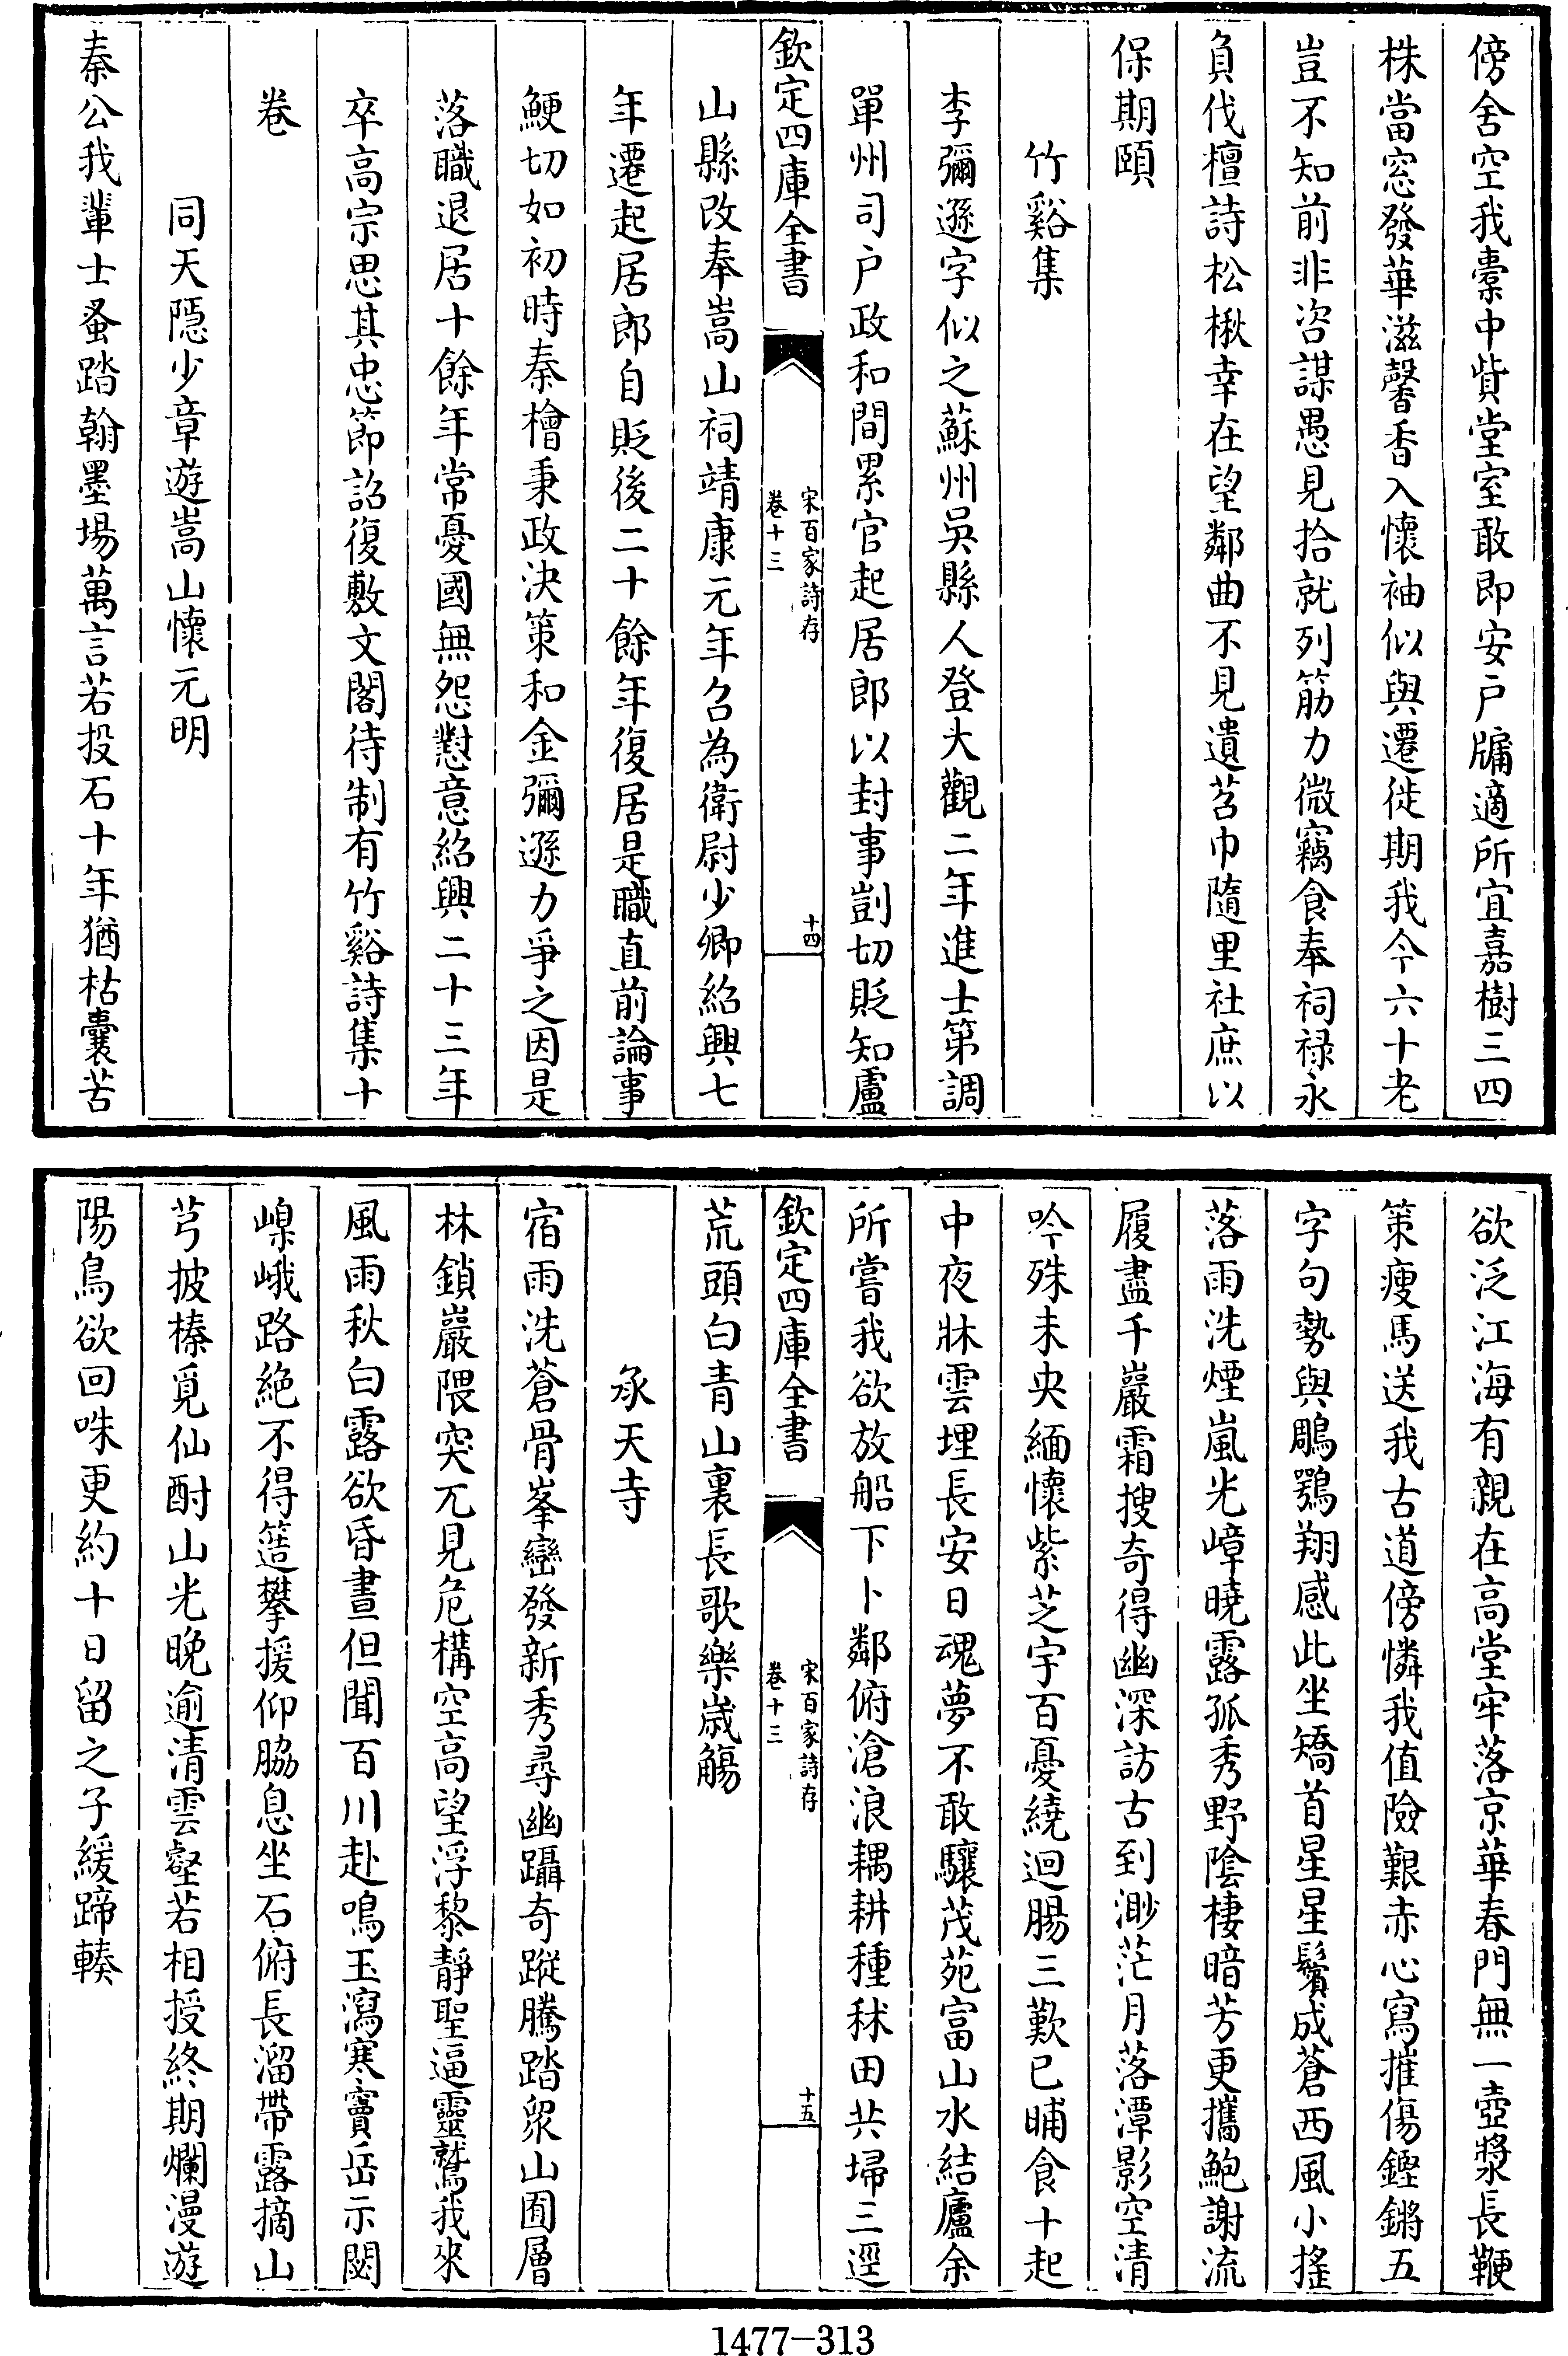 傍舍空我橐中貲堂室敢即安戶牖適所宜嘉樹三四
株當窓發華滋馨香入懷袖似與遷徙期我今六十老
豈不知前非咨謀愚見拾就列筋力微竊食奉祠禄永
負伐檀詩松楸幸在望鄰曲不見遺苕巾隨里社庶以
保期頤
竹谿集
李彌遜字似之蘇州吳縣人登大觀二年進士第調
單州司户政和間累官起居郎以封事剴切貶知盧
欽定四庫全書
宋百家詩存
卷十三
十四
山縣改奉嵩山祠靖康元年召為衛尉少卿紹興七
年遷起居郎自貶後二十餘年復居是職直前論事
鯁切如初時秦檜秉政決策和金彌遜力爭之因是
落職退居十餘年常憂國無怨懟意紹興二十三年
卒高宗思其忠節詔復敷文閣待制有竹谿詩集十
卷
同天隱少章遊嵩山懷元明
秦公我輩士蚤踏翰墨場萬言若投石十年猶枯囊苦
欲泛江海有親在高堂牢落京華春門無一壺漿長鞭
策瘦馬送我古道傍憐我值險艱赤心寫摧傷鏗鏘五
字句勢與鵰鶚翔感此坐矯首星星鬢成蒼西風小搖
落雨洗煙嵐光嶂曉露孤秀野陰棲暗芳更攜鮑謝流
履盡千巖霜搜奇得幽深訪古到渺茫月落潭影空清
吟殊未央緬懷紫芝宇百憂繞迴腸三歎已晡食十起
中夜牀雲埋長安日魂夢不敢驤茂苑富山水結廬余
所嘗我欲放船下卜鄰俯滄浪耦耕種秫田共埽三逕
欽定四庫全書
宋百家詩存
卷十三
十五
荒頭白青山裏長歌樂歲觴
承天寺
宿雨洗蒼骨峯巒發新秀尋幽躡奇蹤騰踏衆山囿層
林鎖巖隈突兀見危構空高望浮黎靜聖逼靈鷲我來
風雨秋白露欲昏晝但聞百川赴鳴玉瀉寒竇岳示閟
嵲峨路絶不得簉攀援仰脇息坐石俯長溜帶露摘山
芎披榛覓仙酎山光晚逾清雲壑若相授終期爛漫遊
陽鳥欲回咮更約十日留之子緩蹄輳
1477-313